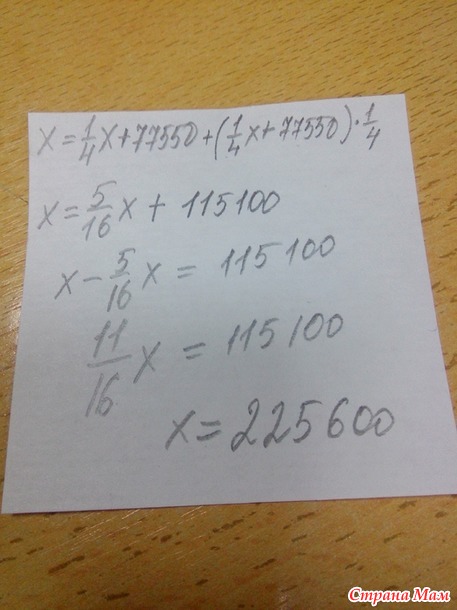 x = 1/4 x + 77550 + (1/4 x + 77550) · 1/4
x = 5/16 x + 115100
x - 5/16 x = 115100
11/16 x = 115100
x = 225600
Страна Мам